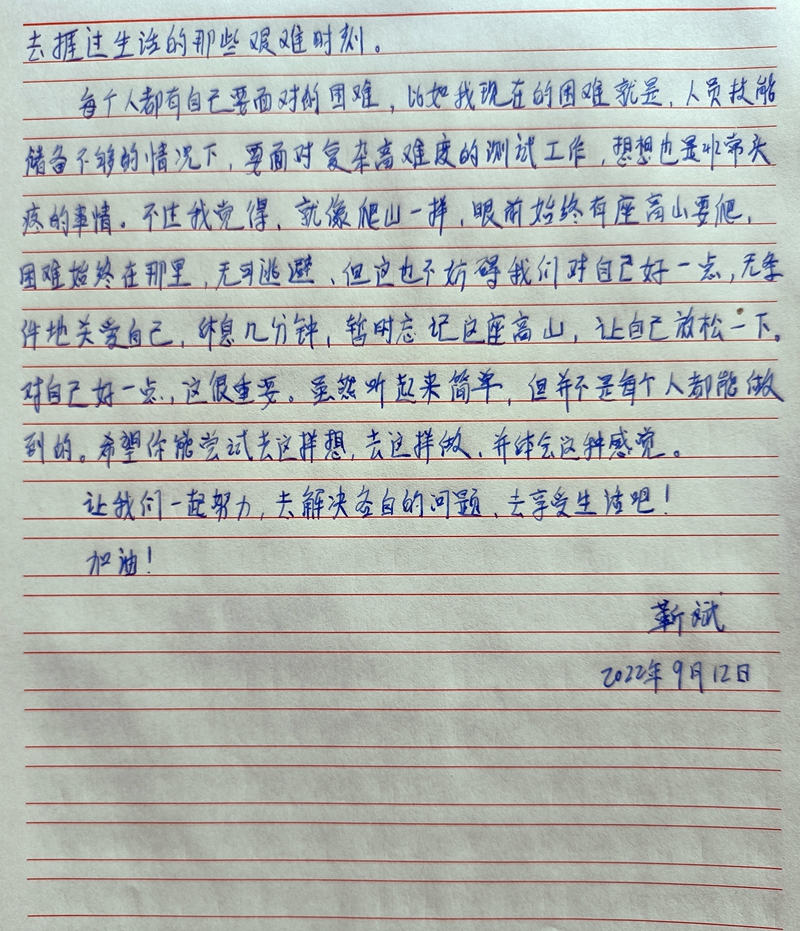 去捱过生活的那些艰难时刻。
每个人都有自己要面对的困难，比如我现在的困难就是，人员技能
储备不够的情况下，要面对复杂高难度的测试工作，想想也是非常头
疼的事情。不过我觉得，就像爬山一样，眼前始终有座高山要爬，
困难始终在那里，无可逃避、但这也不妨碍我们对自己好一点，无条
件地关爱自己，休息几分钟，暂时忘记这座高山，让自己放松一下。
对自己好一点，这很重要。虽然听起来简单，但并不是每个人都能做
到的。希望你能尝试去这样想，去这样做、并体会这种感觉。
让我们一起努力，去解决各自的问题、去享受生活吧！
加油！
靳斌
2022年9月12日